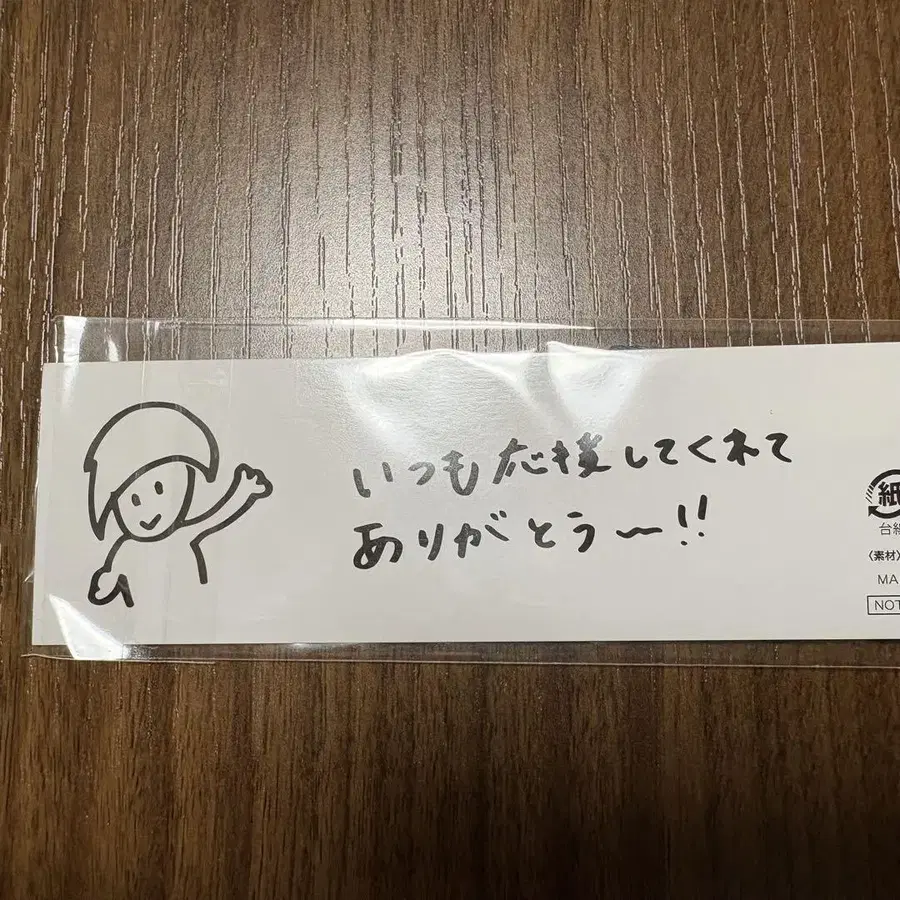 いつも応援してくれて
ありがとう〜!!
紙
台紙
〈素材〉
MA
NOT